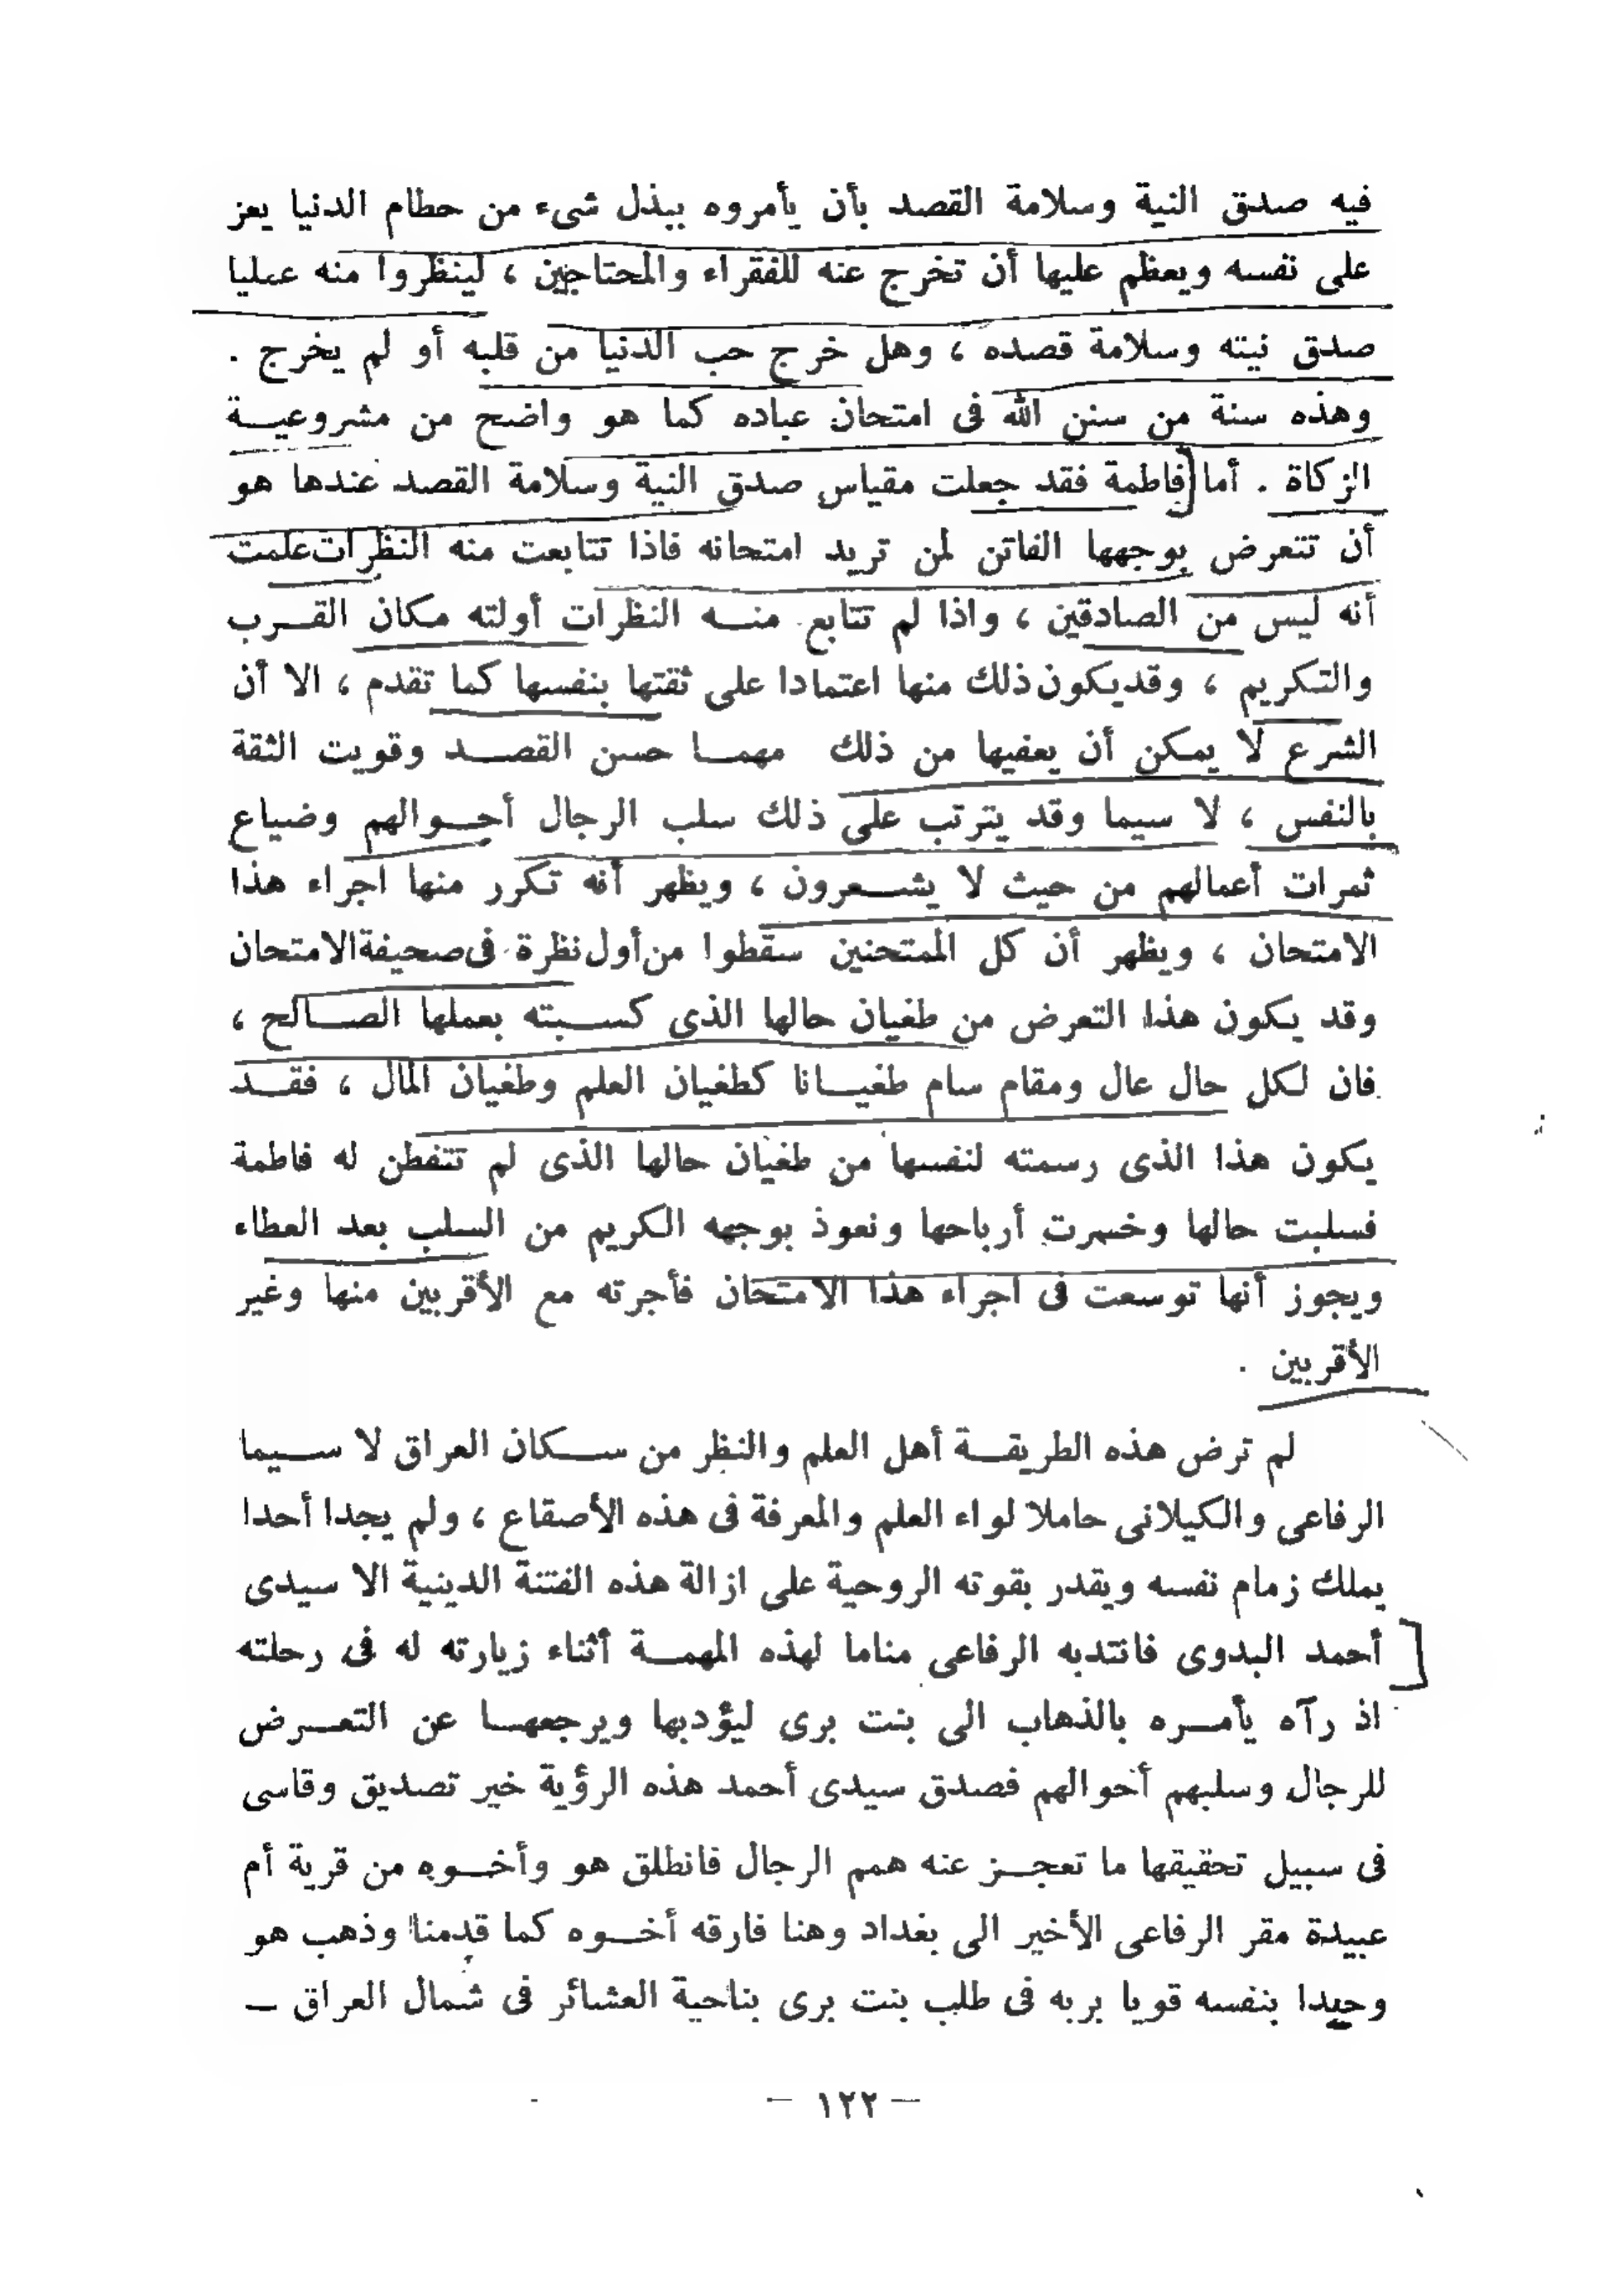 فيه صدق النية وسلامة القصد بأن يأمروه ببذل شىء من حطام الدنيا يعز
على نفسه ويعظم عليها أن تخرج عنه للفقراء والمحتاجين ، لينظروا منه عمليا
صدق نيته وسلامة قصده ، وهل خرج حب الدنيا من قلبه أو لم يخرج .
وهذه سنة من سنن الله فى امتحان عباده كما هو واضح من مشروعيـــة
الزكاة . أما فاطمة فقد جعلت مقياس صدق النية وسلامة القصد عندها هو
أن تتعرض بوجهها الفاتن لمن تريد امتحانه فاذا تتابعت منه النظرات علمت
أنه ليس من الصادقين ، واذا لم تتابع منـــه النظرات أولته مكان القـــرب
والتكريم ، وقد يكون ذلك منها اعتمادا على ثقتها بنفسها كما تقدم ، الا أن
الشرع لا يمكن أن يعفيها من ذلك مهمـــا حسن القصـــد وقويت الثقة
بالنفس ، لا سيما وقد يترتب على ذلك سلب الرجال أحـــوالهم وضياع
ثمرات أعمالهم من حيث لا يشـــعرون ، ويظهر أنه تكرر منها اجراء هذا
الامتحان ، ويظهر أن كل الممتحنين سقطوا من أول نظرة فى صحيفة الامتحان
وقد يكون هذا التعرض من طغيان حالها الذى كســـبته بعملها الصـــالح ،
فان لكل حال عال ومقام سام طغيـــانا كطغيان العلم وطغيان المال ، فقـــد
يكون هذا الذى رسمته لنفسها من طغيان حالها الذى لم تتفطن له فاطمة
فسلبت حالها وخسرت أرباحها ونعوذ بوجهه الكريم من السلب بعد العطاء
ويجوز أنها توسعت فى اجراء هذا الامتحان فأجرته مع الأقربين منها وغير
الأقربين .
لم ترض هذه الطريقـــة أهل العلم والنظر من ســـكان العراق لا ســـيما
الرفاعى والكيلانى حاملا لواء العلم والمعرفة فى هذه الأصقاع ، ولم يجدا أحدا
يملك زمام نفسه ويقدر بقوته الروحية على ازالة هذه الفتنة الدينية الا سيدى
أحمد البدوى فانتدبه الرفاعى مناما لهذه المهمـــة أثناء زيارته له فى رحلته
اذ رآه يأمـــره بالذهاب الى بنت برى ليؤدبها ويرجعهـــا عن التعـــرض
للرجال وسلبهم أحوالهم فصدق سيدى أحمد هذه الرؤية خير تصديق وقاسى
فى سبيل تحقيقها ما تعجـــز عنه همم الرجال فانطلق هو وأخـــوه من قرية أم
عبيدة مقر الرفاعى الأخير الى بغداد وهنا فارقه أخـــوه كما قدمنا وذهب هو
وحيدا بنفسه قويا بربه فى طلب بنت برى بناحية العشائر فى شمال العراق —
— ١٢٢ —